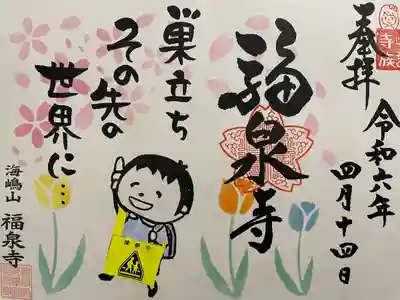 奉拝
令和六年
四月十四日
福泉寺
巣立ち
その先の
世界に…
海嶋山
福泉寺